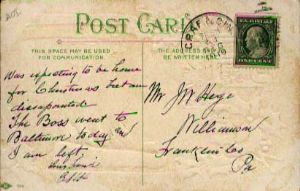 POST CARD
THIS SPACE MAY BE USED FOR COMMUNICATION.
THE ADDRESS TO BE WRITTEN HERE.
Was expecting to be home
for Christmas but am
disapointed
The Boss went to
Baltimore today and
I am left.
Mr J M
Williamson
Franklin Co
Pa